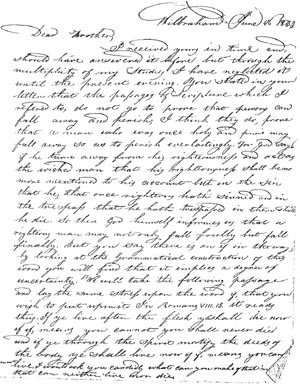 Wilbraham June 1833
Dear Brother,
I received yours in time and
should have answered it before but through the
multiplicity of my Studies I have neglected it
until the present evening. You stated in your
letter that the passages of Scripture which I
refered to, do not go to prove that persons can
fall away and perish, I think they do, prove
that a man who was once holy and may
fall away so as to perish everlastingly. For God says
if he turns away from his righteousness and
the wicked man that his righteousness shall be no
more mentioned to his account but in the sin
that he that once righteous hath sinned and in
the trespass that he hath trespassed in them shall
he die. So then God himself informs us that a
righteous man may not only fall foully but fall
finally. But you say there is an if in the way
by looking at the Grammatical construction of this
word you will find that it implies a degree of
uncertainty. We will take the following passage
and lay the same stress upon the word if that you
wish to put upon it. In Romans VIII. 13. It reads
thus. If ye live after the flesh ye shall die now
if if, means you cannot you shall never die
and if ye through the spirit mortify the deeds of
the body ye shall live now if if, means you can
live, I ask you candidly what can you make of that
that can neither live nor die